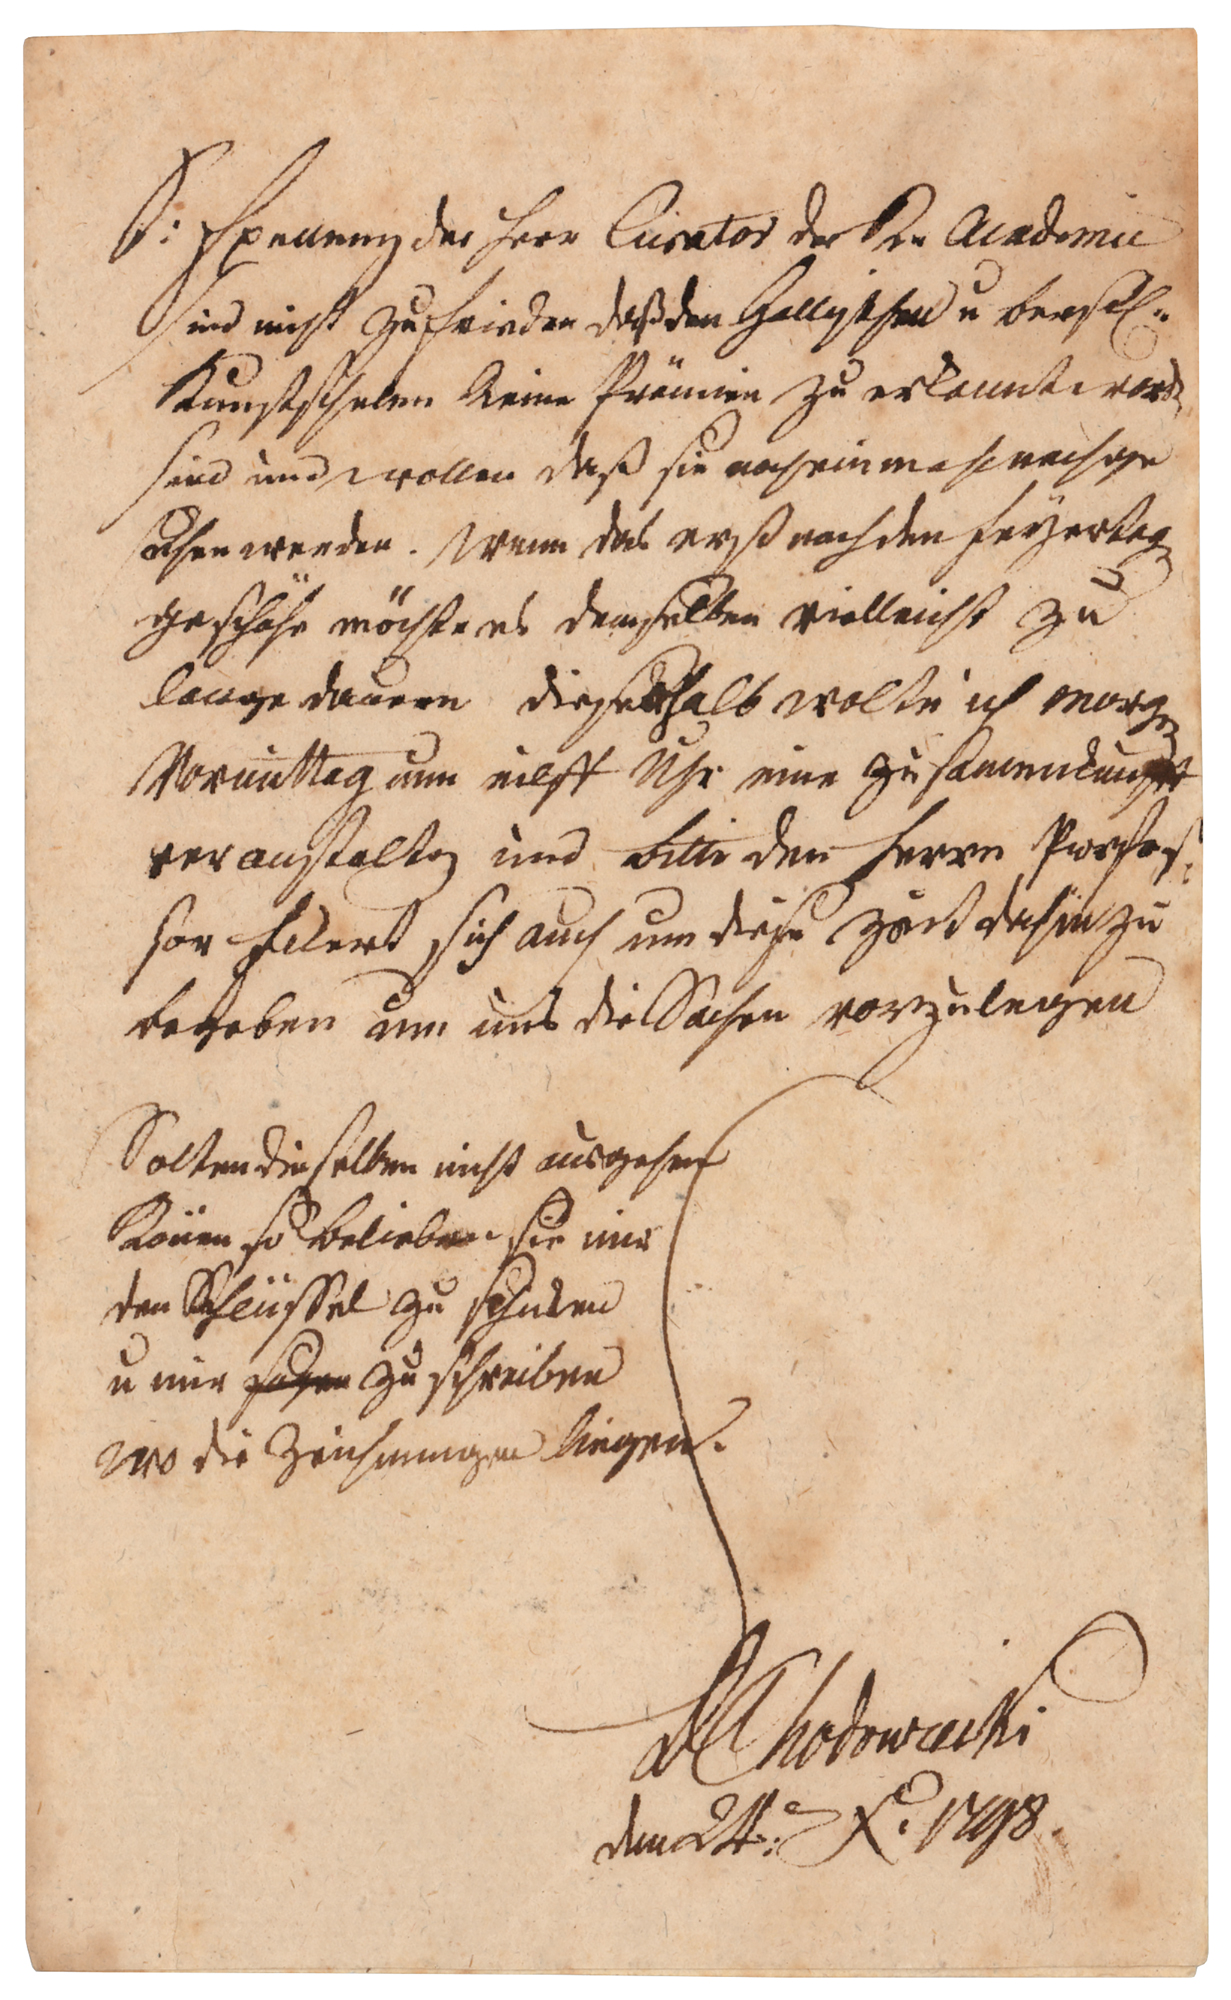 S: Excellenz der Herr Curator der Kön Academie
sind nicht zufrieden daß den Hallischen u bresl:
Kunstschulen keine Prämien zu erkannt word
sind und wollen daß sie noch einmahl nachge
sehen werden. Wenn das erst nach den Feÿertag
geschähe möchte es demselben vielleicht zu
lange dauern dieserhalb wolte ich morgen
Vormittag um eilff Uhr eine zusamenkunft
veranstalten und bitte den Herrn Profes:
sor Eckert sich auch um diese Zeit dahin zu
begeben um uns die Sachen vorzulegen
Solten dieselben nicht ausgehen
könen so belieben sie mir
den Schlüssel zu schicken
u mir zu schreiben
wo die Zeichnungen liegen.
D Chodowiecki
den 24t: X. 1798.